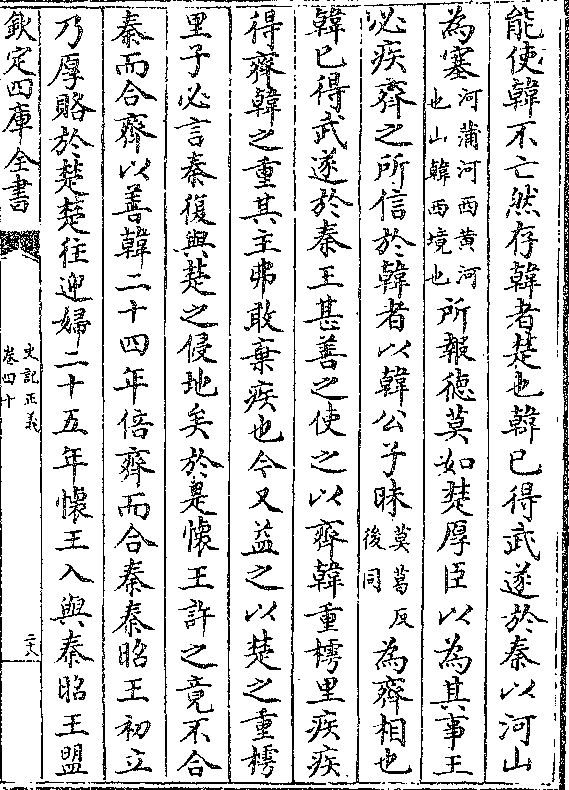 能使韓不亡然存韓者楚也韓已得武遂於秦以河山
為塞河蒲河西黄河也山韓西境也所報徳莫如楚厚臣以為其事王
必疾齊之所信於韓者以韓公子昧莫葛反後同為齊相也
韓已得武遂於秦王甚善之使之以齊韓重樗里疾疾
得齊韓之重其主弗敢棄疾也今又益之以楚之重樗
里子必言秦復與楚之侵地矣於是懐王許之竟不合
秦而合齊以善韓二十四年倍齊而合秦秦昭王初立
乃厚賂於楚楚往迎婦二十五年懐王入與秦昭王盟
欽定四庫全書
史記正義
卷四十
二八